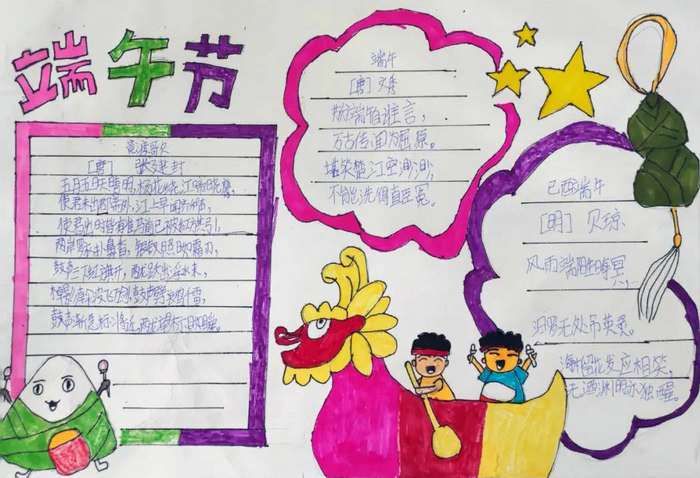 端午节
竞渡歌
[唐] 张建封
五月五日天晴明,杨花绕江啼晓莺。
使君未出郡斋外,江上早闻齐和声。
使君出时皆有准,马前已被红旗引。
两岸
鼓声三下红旗开,两龙跃出浮水来。
鼓声渐急标将近,两龙望标目如瞬。
端午
[唐] 文秀
节分端午自谁言,
万古传闻为屈原。
堪笑楚江空渺渺,
不能洗得直臣冤。
己酉端午
[明] 贝琼
风雨端阳生晦冥
汨罗无处吊英灵。
海榴花发应相笑,
无酒渊明亦独醒。